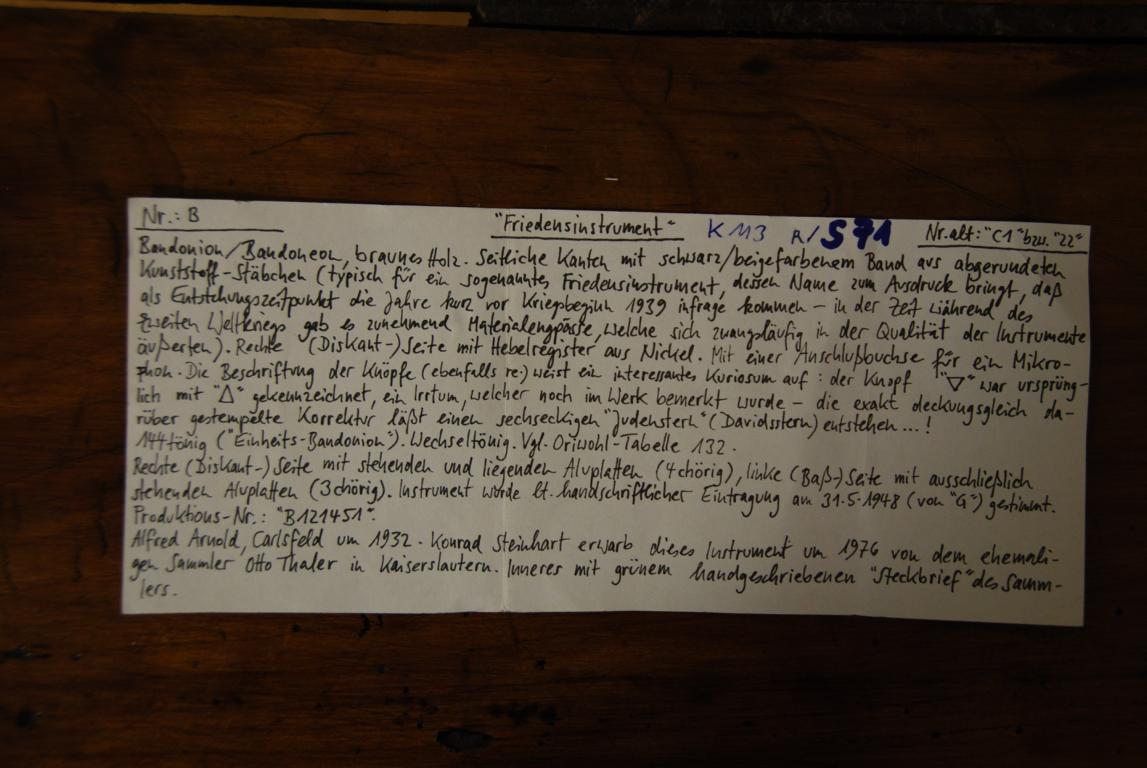 Nr.: B "Friedensinstrument" K 113 R/S71 Nr. alt: "C1" bzw. "22"
Bandonion/Bandoneon, braunes Holz. Seitliche Kanten mit schwarz/beigefarbenem Band aus abgerundeten
Kunststoff-Stäbchen (typisch für ein sogenanntes Friedensinstrument, dessen Name zum Ausdruck bringt, daß
als Entstehungszeitpunkt die Jahre kurz vor Kriegsbeginn 1939 infrage kommen – in der Zeit während des
Zweiten Weltkriegs gab es zunehmend Materialengpässe, welche sich zwangsläufig in der Qualität der Instrumente
äußerten). Rechte (Diskant-) Seite mit Hebelregister aus Nickel. Mit einer Anschlußbuchse für ein Mikro-
phon. Die Beschriftung der Knöpfe (ebenfalls re.) weist ein interessantes Kuriosum auf: der Knopf "▽" war ursprüng-
lich mit "△" gekennzeichnet, ein Irrtum, welcher noch im Werk bemerkt wurde – die exakt deckungsgleich da-
rüber gestempelte Korrektur läßt einen sechseckigen "Judenstern" (Davidsstern) entstehen...!
144tönig ("Einheits-Bandonion"). Wechseltönig. Vgl. Oriwohl-Tabelle 132.
Rechte (Diskant-) Seite mit stehenden und liegenden Aluplatten (4chörig), linke (Baß-) Seite mit ausschließlich
stehenden Aluplatten (3chörig). Instrument wurde lt. handschriftlicher Eintragung am 31.5.1948 (von "G") gestimmt.
Produktions-Nr.: "B121451".
Alfred Arnold, Carlsfeld um 1932. Konrad Steinhart erwarb dieses Instrument um 1976 von dem ehemali-
gen Sammler Otto Thaler in Kaiserslautern. Inneres mit grünem handgeschriebenen "Steckbrief" des Samm-
lers.